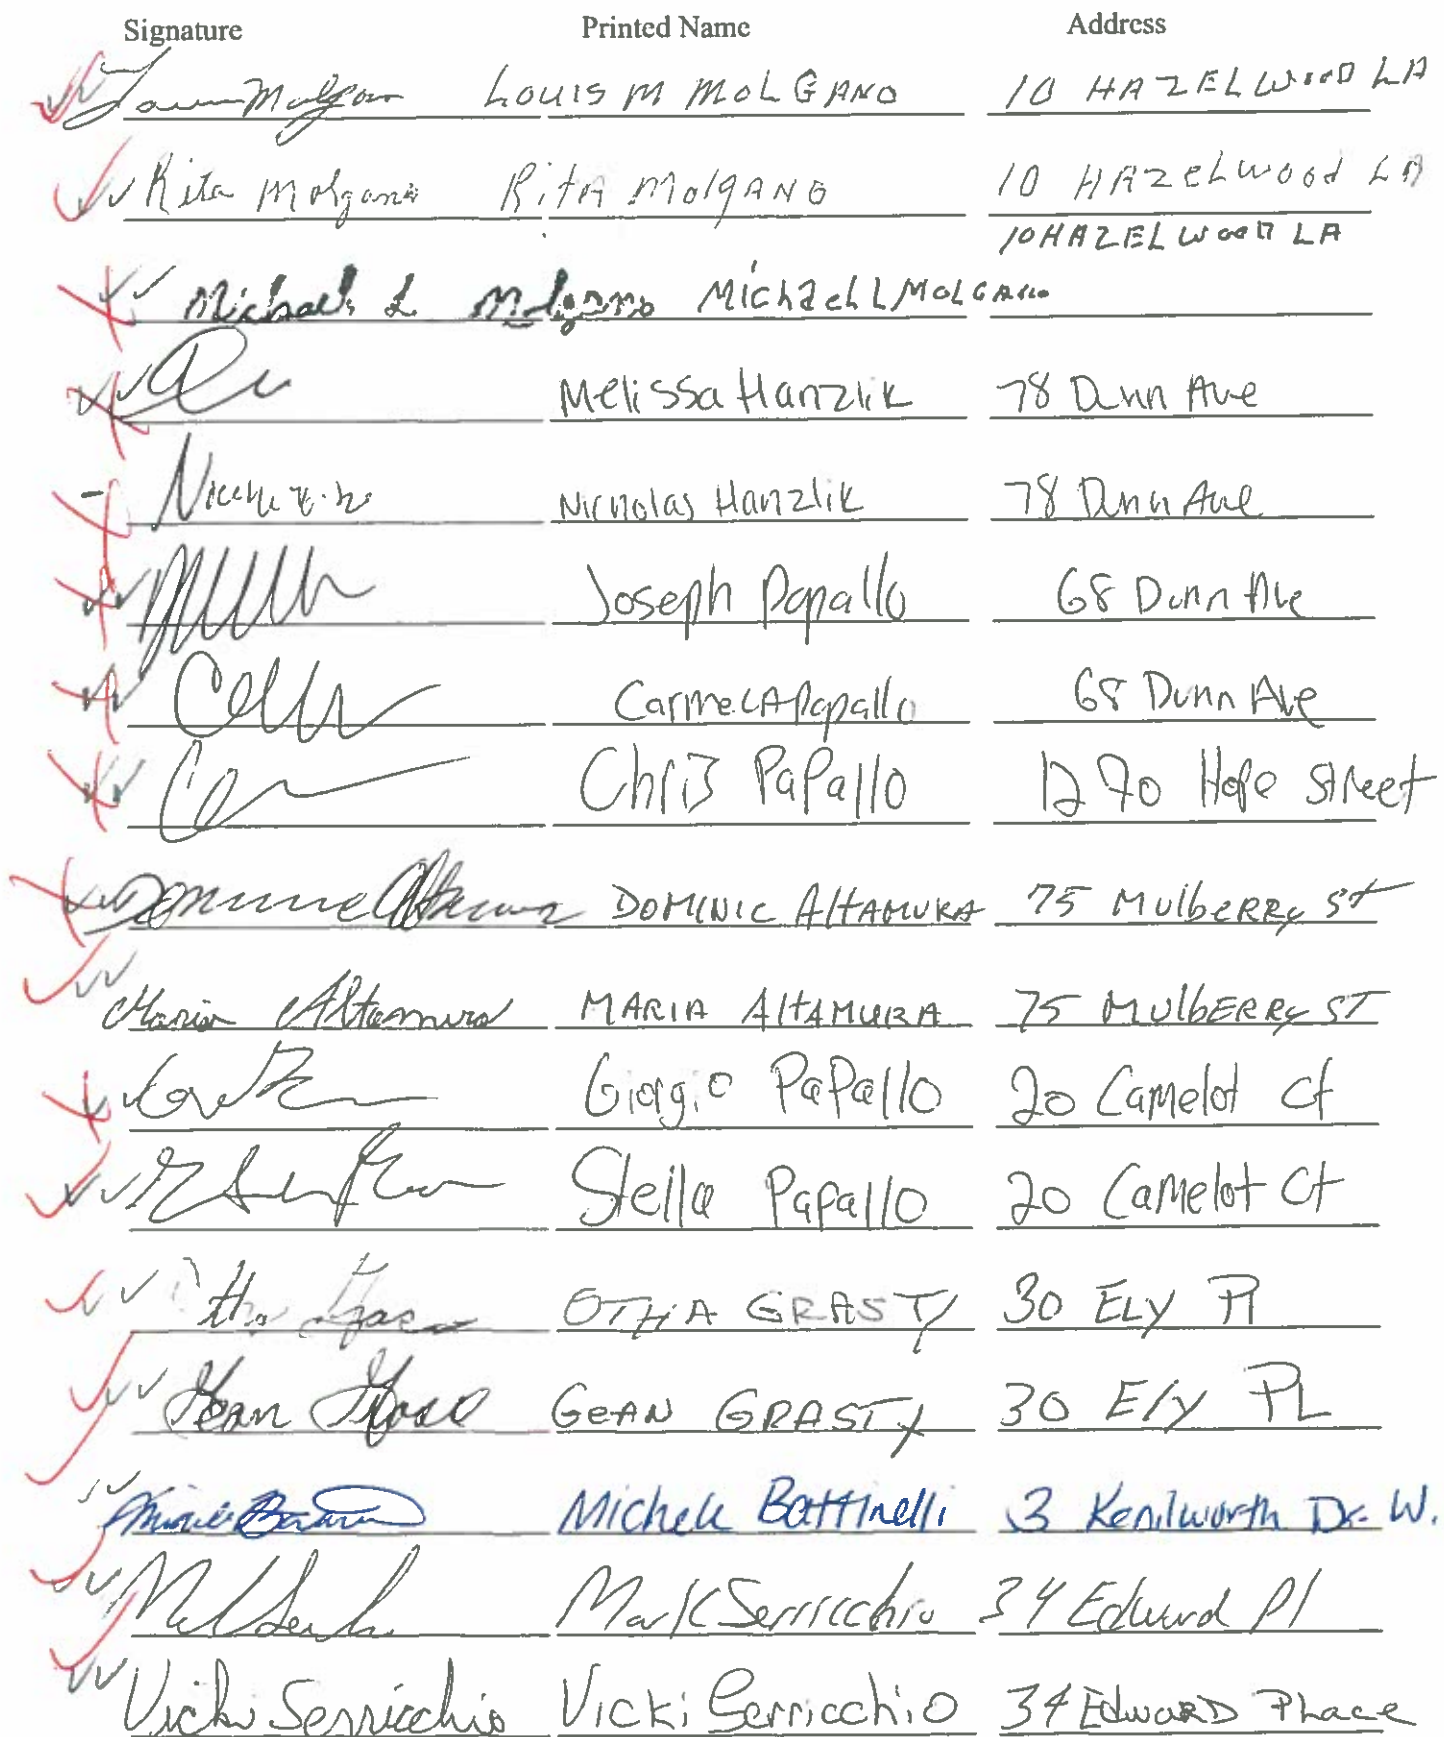 Signature Printed Name Address
Louis M MOLGANO 10 HAZELWOOD LA
Rita Molgano RitA MolgANO 10 HAZELWOOd LA
10 HAZELWOOD LA
Michael L Molgano MichaEL L MOLGANO
Melissa Hanzlik 78 Dunn Ave
Nicholas Hanzlik 78 Dunn Ave
Joseph Papallo 68 Dunn Ave
Carmela Papallo 68 Dunn Ave
Chris PaPallo 1270 Hope Street
DOMINIC AltAMURA 75 MulbeRRy St
Maria Altamura MARIA AltAMURA 75 MulbERRy ST
Giorgio PaPallo 20 Camelot Ct
Stella PaPallo 20 Camelot Ct
OTHA GRASTY 30 ELY Pl
GEAN GRASTY 30 Ely PL
Michele Battinelli 3 Kenilworth Dr. W.
Mark Serricchio 34 Edward Pl
Vicki Serricchio Vicki Serricchio 34 EdwaRD Place